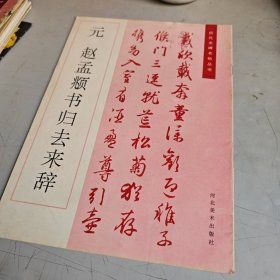 元 赵孟頫书归去来辞
載欣載奔童僕歡迎稚子
候門三逕就荒松菊猶存
携幼入室有酒盈尊引壺
河北美术出版社